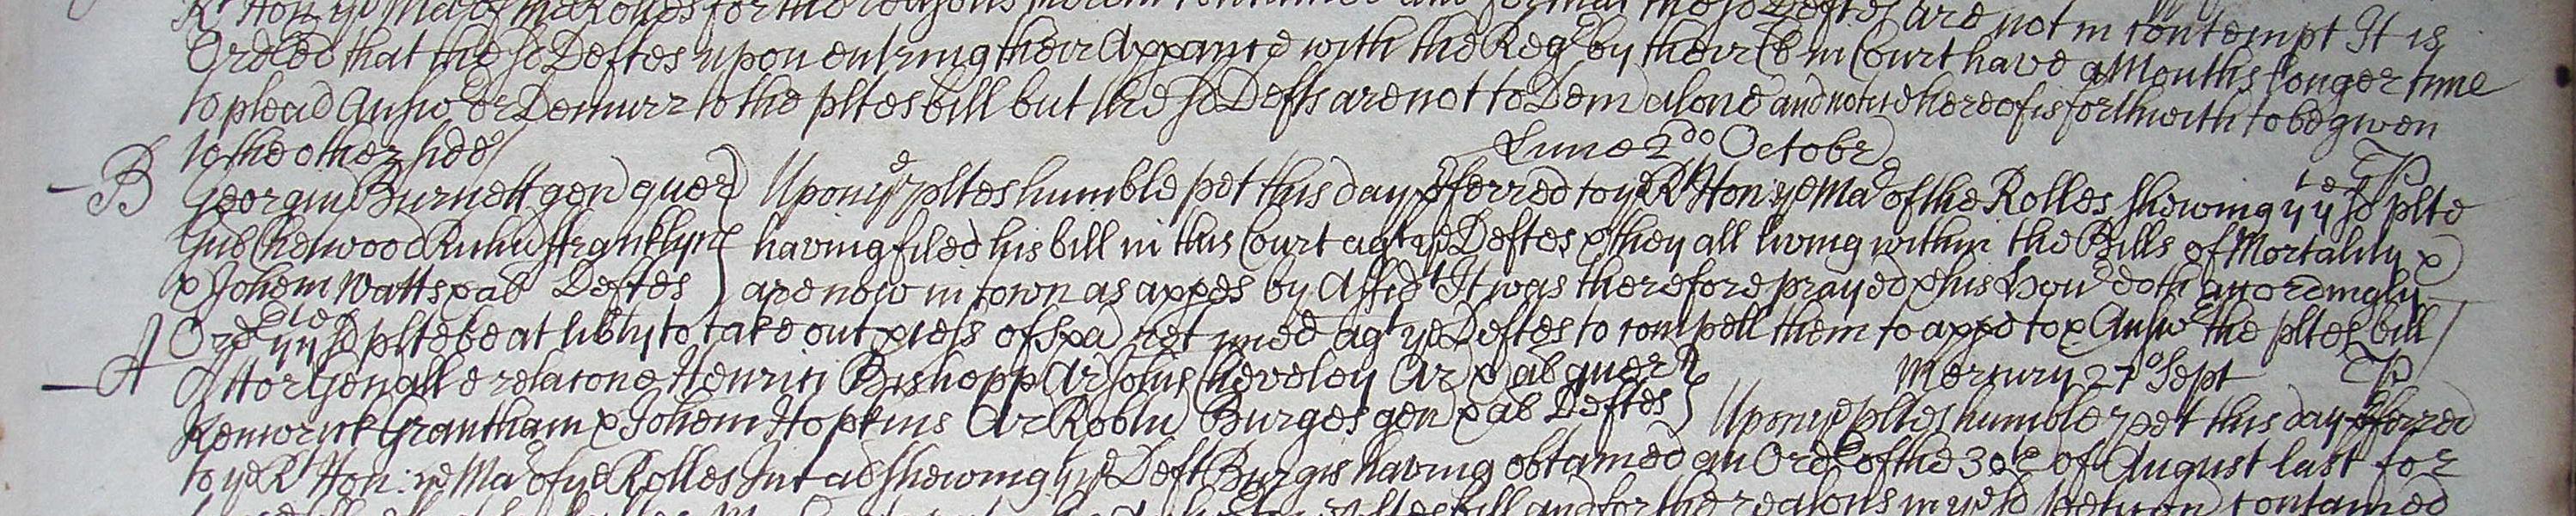 Rt Hon ye Mar of the Rolles for the reasons therein contained and for that the sd Deftes are not in contempt It is
Ordered that the sd Deftes upon entring their Appance with the Regr by their Cl in Court have a Months longer time
to plead Answer or Demurr to the pltes bill but the sd Defts are not to Dem alone and notice thereof is forthwith to be given
to the other side
Lune 2do Octobr
B Georgiu Burnett gen quer Upon ye pltes humble pet this day pferred to ye Rt Hon ye Mar of the Rolles shewing yt ye sd plte
Gub Henwood Richu ffranklyn having filed his bill in this Court agt ye Deftes & they all living within the Bills of Mortality &
& Johem Watts & al Deftes are now in town as appes by Affidt It was therefore prayed & his Honr doth accordingly
Order yt ye sd plte be at libty to take out pcess of Spa ret imed agt ye Deftes to compell them to appe to & Answr the pltes bill
A Attor Genall e relacone Henrici Bishopp Ar Johis Cheveley Ar & al quer Mercury 27o Sept
Kenwrick Grantham & Johem Hopkins Ar Robtu Burges gen & al Deftes Upon ye pltes humble pet this day pferred
to ye Rt Hon: ye Mar of ye Rolles Int al shewing yt ye Deft Burgis having obtained an Order of the 30th of August last for
pltes bill and for the reasons in ye sd peticon contained